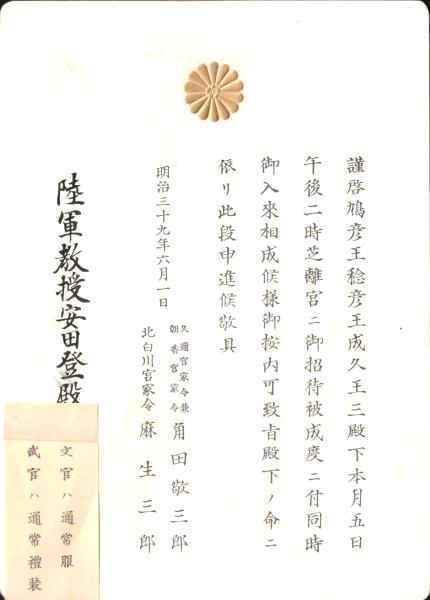 謹啓鳩彦王稔彦王成久王三殿下本月五日
午後二時芝離宮ニ御招待被成度ニ付同時
御入來相成候様御按内可致旨殿下ノ命ニ
依リ此段申進候敬具
明治三十九年六月一日
久邇宮家令兼
朝香宮家令
角田敬三郎
北白川宮家令 麻生三郎
陸軍教授安田登殿
文官ハ通常服
武官ハ通常禮装